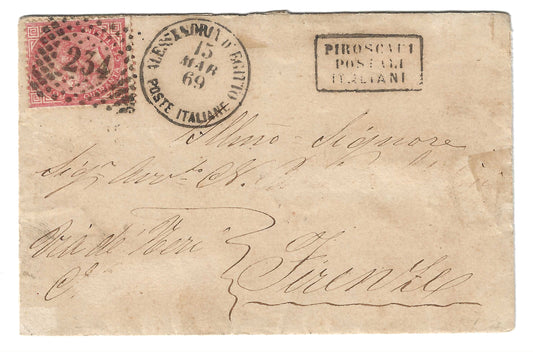 234
ALESSANDRIA D'EGITTO
15
MAR
69
POSTE ITALIANE
PIROSCAFI
POSTALI
ITALIANI
Illmo Signore
Sigr Avvto
Via de' Neri
Firenze